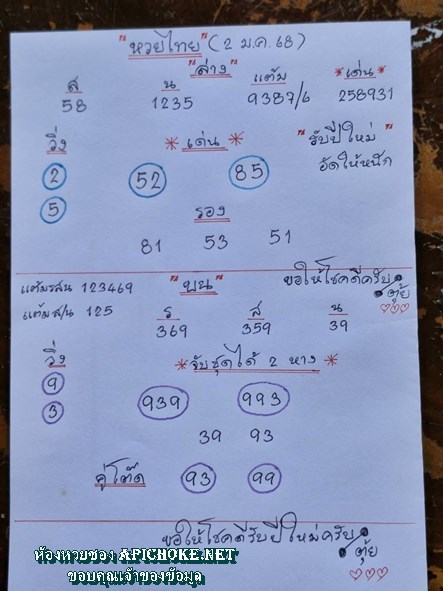 "หวยไทย" (2 ม.ค. 68)
"ล่าง"
ส น แต้ม *เด่น*
58 1235 9387/6 258931
วิ่ง * เด่น * "รับปีใหม่"
2 52 85 อัดให้หนัก
5
รอง
81 53 51
แต้มรสน 123469 "บน" ขอให้โชคดีครับ
แต้มส/น 125 ตุ้ย
ร ส น
369 359 39
วิ่ง * จับชุดได้ 2 หาง *
9
3 939 993
39 93
คู่โต๊ด 93 99
ขอให้โชคดีรับปีใหม่ครับ
ตุ้ย
ห้องหวยซอง APICHOKE.NET
ขอบคุณเจ้าของข้อมูล